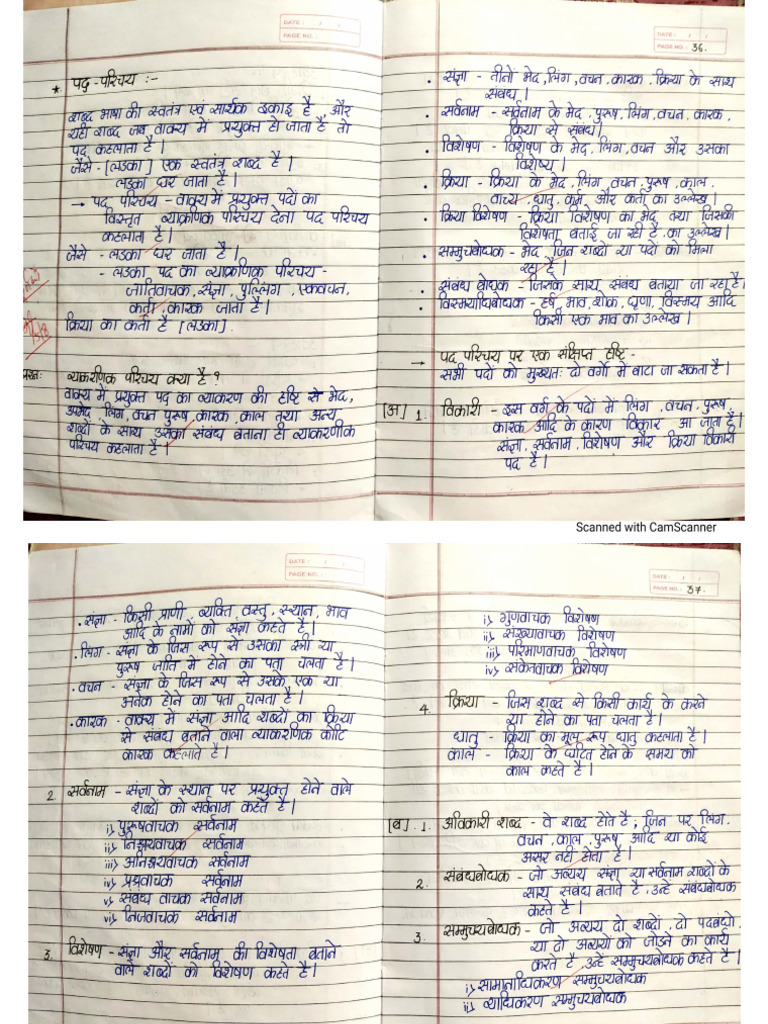 DATE : / /
PAGE NO. :
* पद - परिचय :-
शब्द भाषा की स्वतंत्र एवं सार्थक इकाइ है और
यही शब्द जब वाक्य में प्रयुक्त हो जाता है तो
पद कहलाता है।
जैसे - [लडका] एक स्वतंत्र शब्द है।
लडका घर जाता है।
→ पद परिचय - वाक्य में प्रयुक्त पदों का
विस्तृत व्याक्रणिक परिचय देना पद परिचय
कहलाता है।
जैसे - लडका घर जाता है।
- लडका पद का व्याक्रणिक परिचय -
जातिवाचक, संज्ञा, पुल्लिंग, एकवचन,
कर्ता, कारक जाता है।
क्रिया का कर्ता है [लडका].
प्रश्न: व्याकरणिक परिचय क्या है ?
वाक्य में प्रयुक्त पद का व्याकरण की दृष्टि से भेद,
उपभेद, लिंग, वचन, पुरूष, कारक, काल तथा अन्य
शब्दों के साथ उसका संबंध बताना ही व्याकरणीक
परिचय कहलाता है।
DATE : / /
PAGE NO. : 36.
• संज्ञा - तीनों भेद, लिंग, वचन, कारक, क्रिया के साथ
संबंध।
• सर्वनाम - सर्वनाम के भेद, पुरूष, लिंग, वचन, कारक,
क्रिया से संबंध।
• विशेषण - विशेषण के भेद, लिंग, वचन और उसका
विशेष्य।
• क्रिया - क्रिया के भेद, लिंग, वचन, पुरूष, काल,
वाच्य, धातु, कर्म, और कर्ता का उल्लेख।
• क्रिया विशेषण - क्रिया विशेषण का भेद तथा जिसकी
विशेषता बताई जा रही है, का उल्लेख।
• सम्मुचयबोधक - भेद, जिन शब्दों या पदों को मिला
रहा है।
• संबंध बोधक - जिसके साथ संबंध बताया जा रहा है।
• विस्मयादिबोधक - हर्ष, भाव, शोक, घृणा, विस्मय आदि
किसी एक भाव का उल्लेख।
→ पद परिचय पर एक संक्षिप्त दृष्टि -
सभी पदों को मुख्यतः दो वर्गो में बाटा जा सकता है।
[अ] 1. विकारी - इस वर्ग के पदों में लिंग, वचन, पुरूष,
कारक आदि के कारण विकार आ जाता है।
संज्ञा, सर्वनाम, विशेषण और क्रिया विकारी
पद है।
Scanned with CamScanner
DATE : / /
PAGE NO. :
• संज्ञा - किसी प्राणी, व्यक्ति, वस्तु, स्थान, भाव
आदि के नामों को संज्ञा कहते है।
• लिंग - संज्ञा के जिस रूप से उसका स्त्री या
पुरूष जाति में होने का पता चलता है।
• वचन - संज्ञा के जिस रूप से उसके एक या
अनेक होने का पता चलता है।
• कारक - वाक्य में संज्ञा आदि शब्दों का क्रिया
से संबंध बताने वाला व्याकरणिक कोटि
कारक कहलाते है।
2. सर्वनाम - संज्ञा के स्थान पर प्रयुक्त होने वाले
शब्दों को सर्वनाम कहते है।
i) पुरूषवाचक सर्वनाम
ii) निश्चयवाचक सर्वनाम
iii) अनिश्चयवाचक सर्वनाम
iv) प्रश्नवाचक सर्वनाम
v) संबंध वाचक सर्वनाम
vi) निजवाचक सर्वनाम
3. विशेषण - संज्ञा और सर्वनाम की विशेषता बताने
वाले शब्दों को विशेषण कहते है।
DATE : / /
PAGE NO. : 37.
i) गुणवाचक विशेषण
ii) संख्यावाचक विशेषण
iii) परिमाणवाचक विशेषण
iv) संकेतवाचक विशेषण
4. क्रिया - जिस शब्द से किसी कार्य के करने
या होने का पता चलता है।
धातु - क्रिया का मूल रूप धातु कहलाता है।
काल - क्रिया के घटित होने के समय को
काल कहते है।
[ब] . 1. अविकारी शब्द - वे शब्द होते है, जिन पर लिंग,
वचन, काल, पुरूष आदि या कोई
असर नहीं होता है।
2. संबंधबोधक - जो अव्यय संज्ञा या सर्वनाम शब्दों के
साथ संबंध बताते है, उन्हें संबंधबोधक
कहते है।
3. सम्मुचयबोधक - जो अव्यय दो शब्दों, दो पदबंधो,
या दो अव्ययों को जोडने का कार्य
करते है उन्हें सम्मुचयबोधक कहते है।
i) सामानाधिकरण सम्मुचयबोधक
ii) व्याधिकरण सम्मुचयबोधक